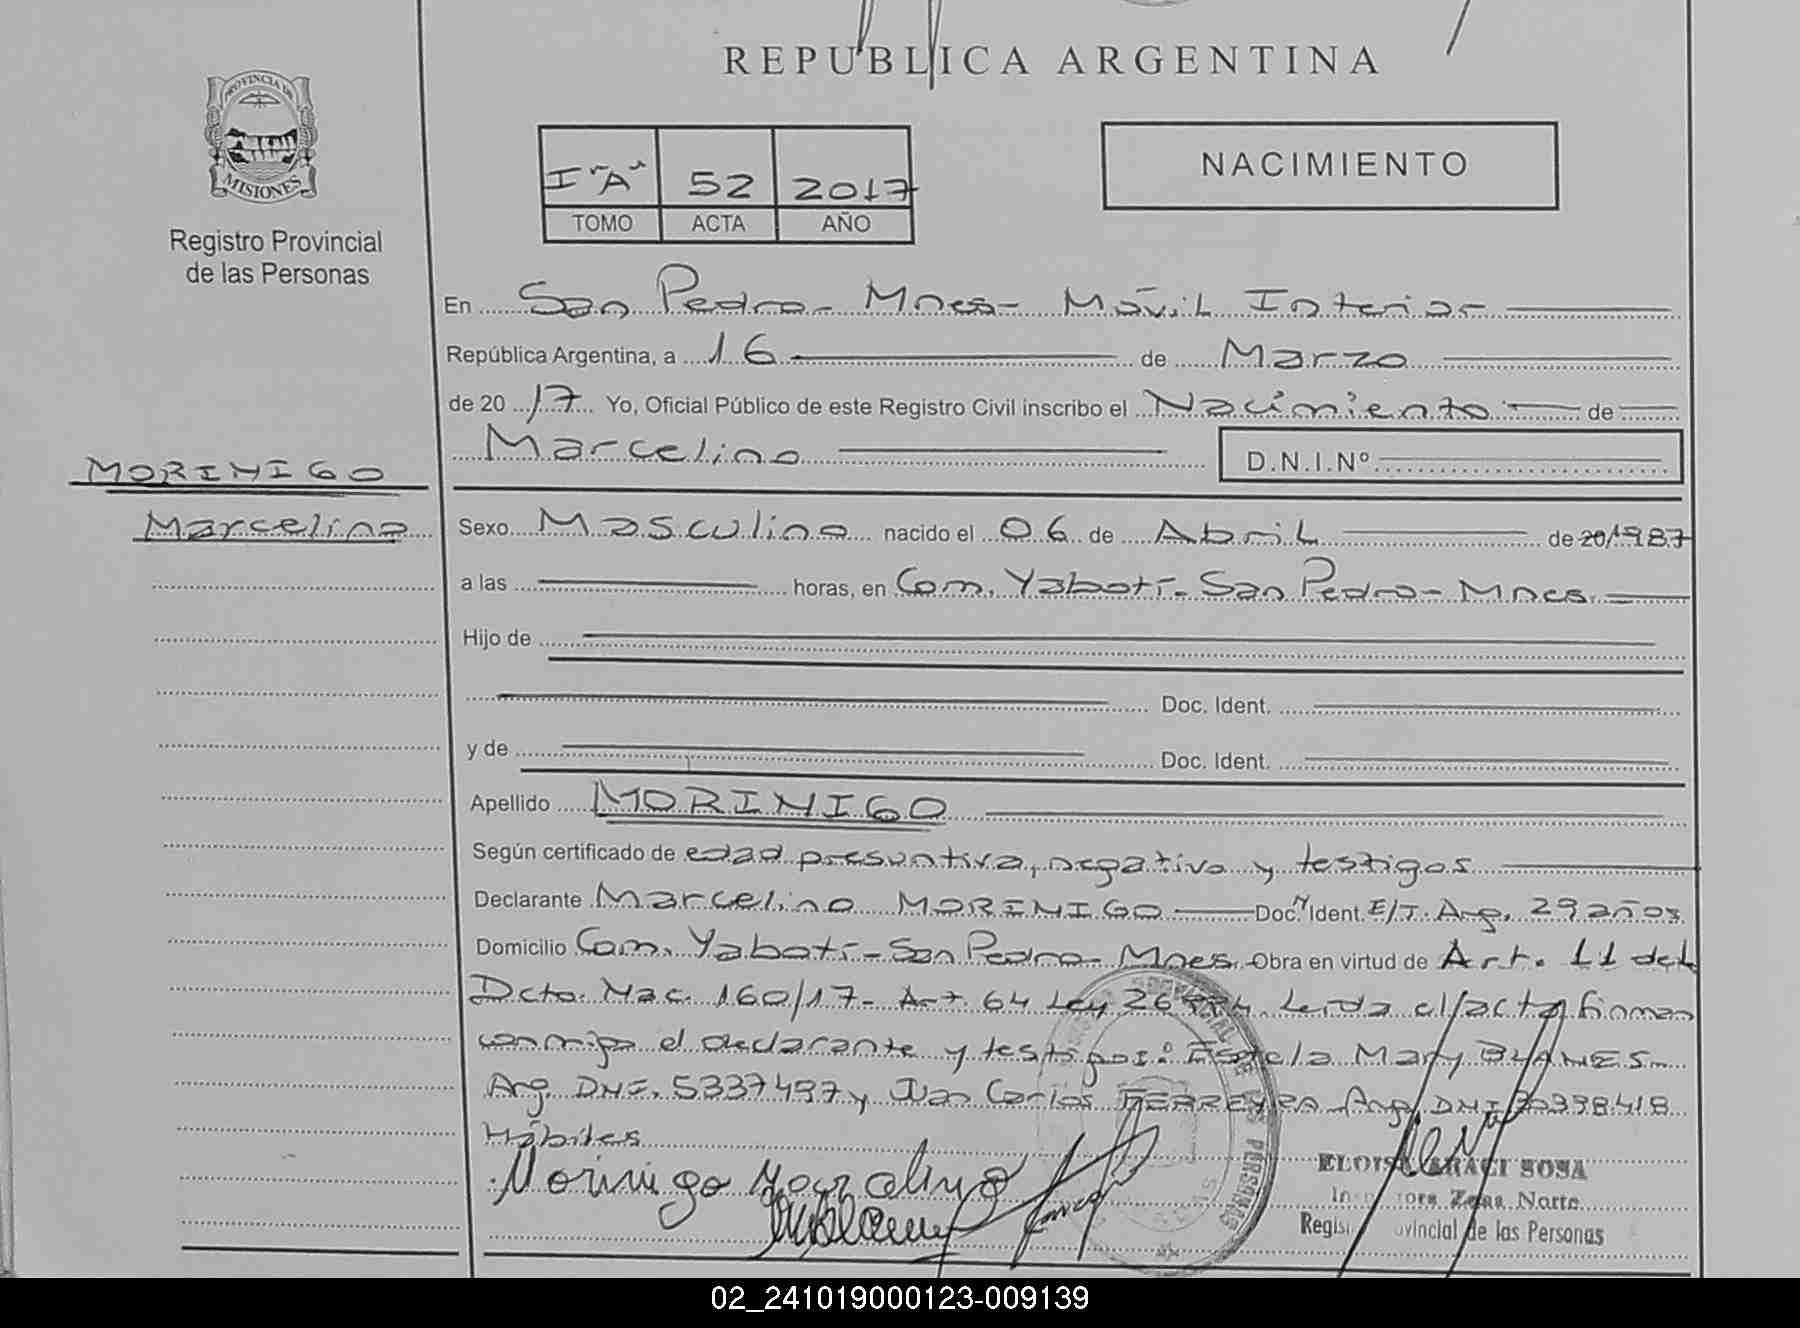 REPUBLICA ARGENTINA
PROVINCIA DE
MISIONES
Registro Provincial
de las Personas
I "A" 52 2017
TOMO ACTA AÑO
NACIMIENTO
En San Pedro - Mnes - Móvil Interior
República Argentina, a 16 de Marzo
de 20 17 Yo, Oficial Público de este Registro Civil inscribo el Nacimiento de
Marcelino D.N.I.Nº
MORINIGO
Marcelino
Sexo Masculino nacido el 06 de Abril de 20/1987
a las horas, en Com. Yabotí - San Pedro - Mnes.
Hijo de
Doc. Ident.
y de Doc. Ident.
Apellido MORINIGO
Según certificado de edad presuntiva, negativo y testigos
Declarante Marcelino MORINIGO Doc. Ident. E/T. Arg. 29 años
Domicilio Com. Yabotí - San Pedro - Mnes. Obra en virtud de Art. 11 del
Dcto. Nac. 160/17 - Art. 64 Ley Leida el acta firman
conmigo el declarante y testigos: Estela Mary BLANES -
Arg. DNI. 5337497 y Juan Carlos FERREYRA Arg. DNI
Hábiles
Morinigo Marcelino
ELOISA ARACI SOSA
Zona Norte
Provincial de las Personas
02_241019000123-009139